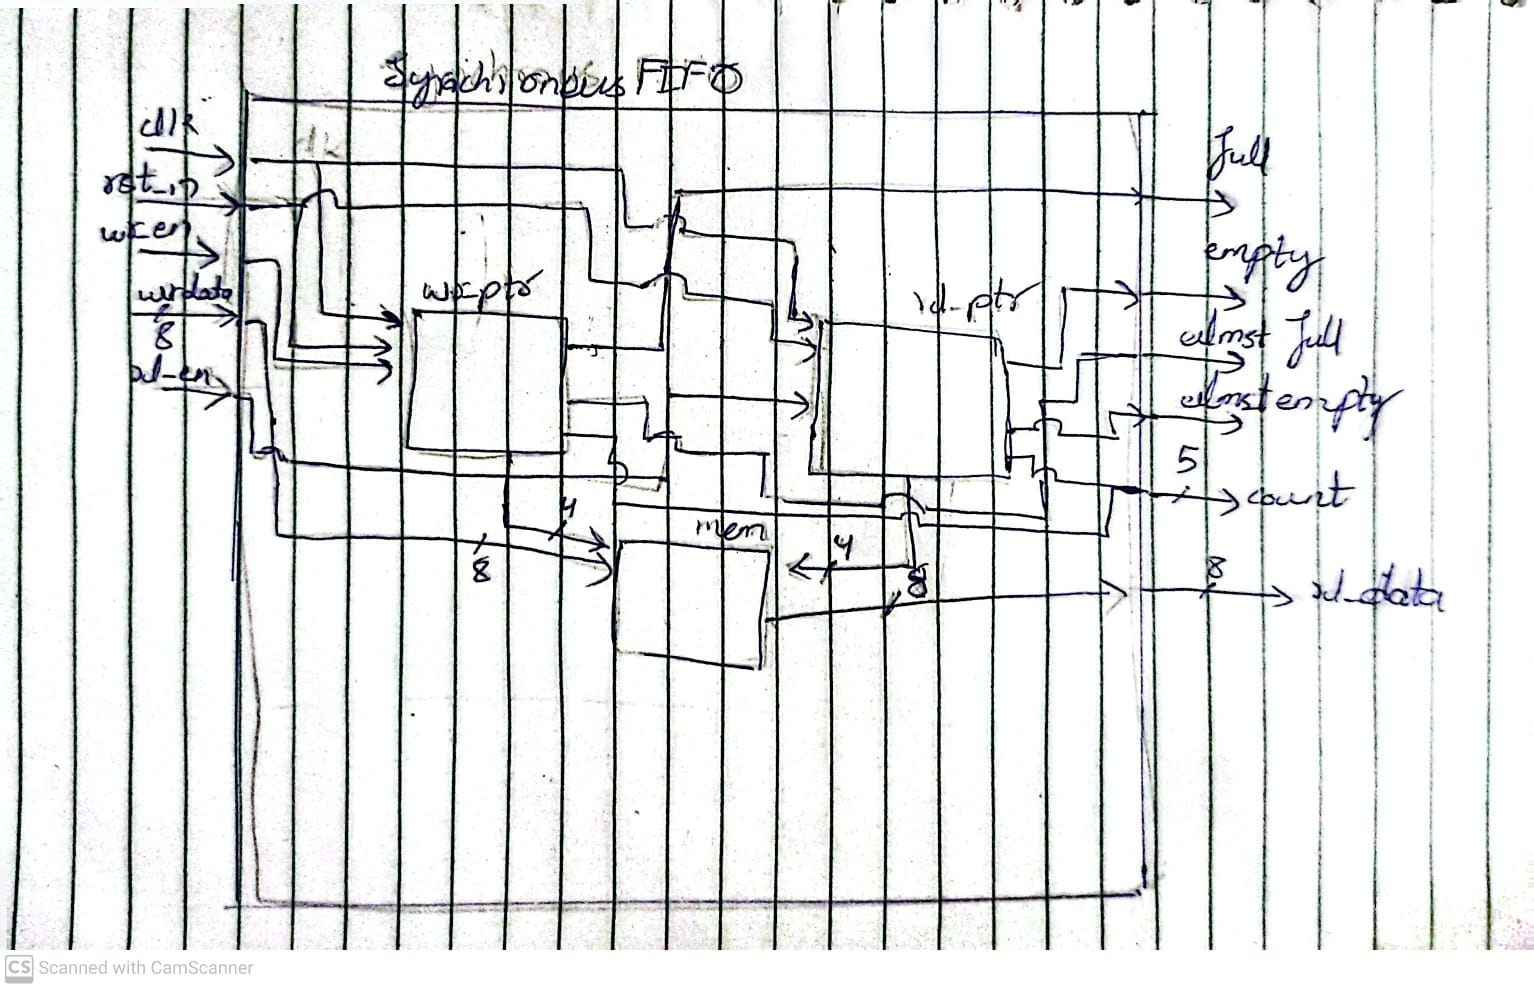 Synchronous FIFO
clk
clk
rst_n
wr_en
wr data
8
rd_en
wr_ptr
rd_ptr
full
empty
almst full
almst empty
5
count
4
mem
4
8
8
8
rd_data
CS Scanned with CamScanner